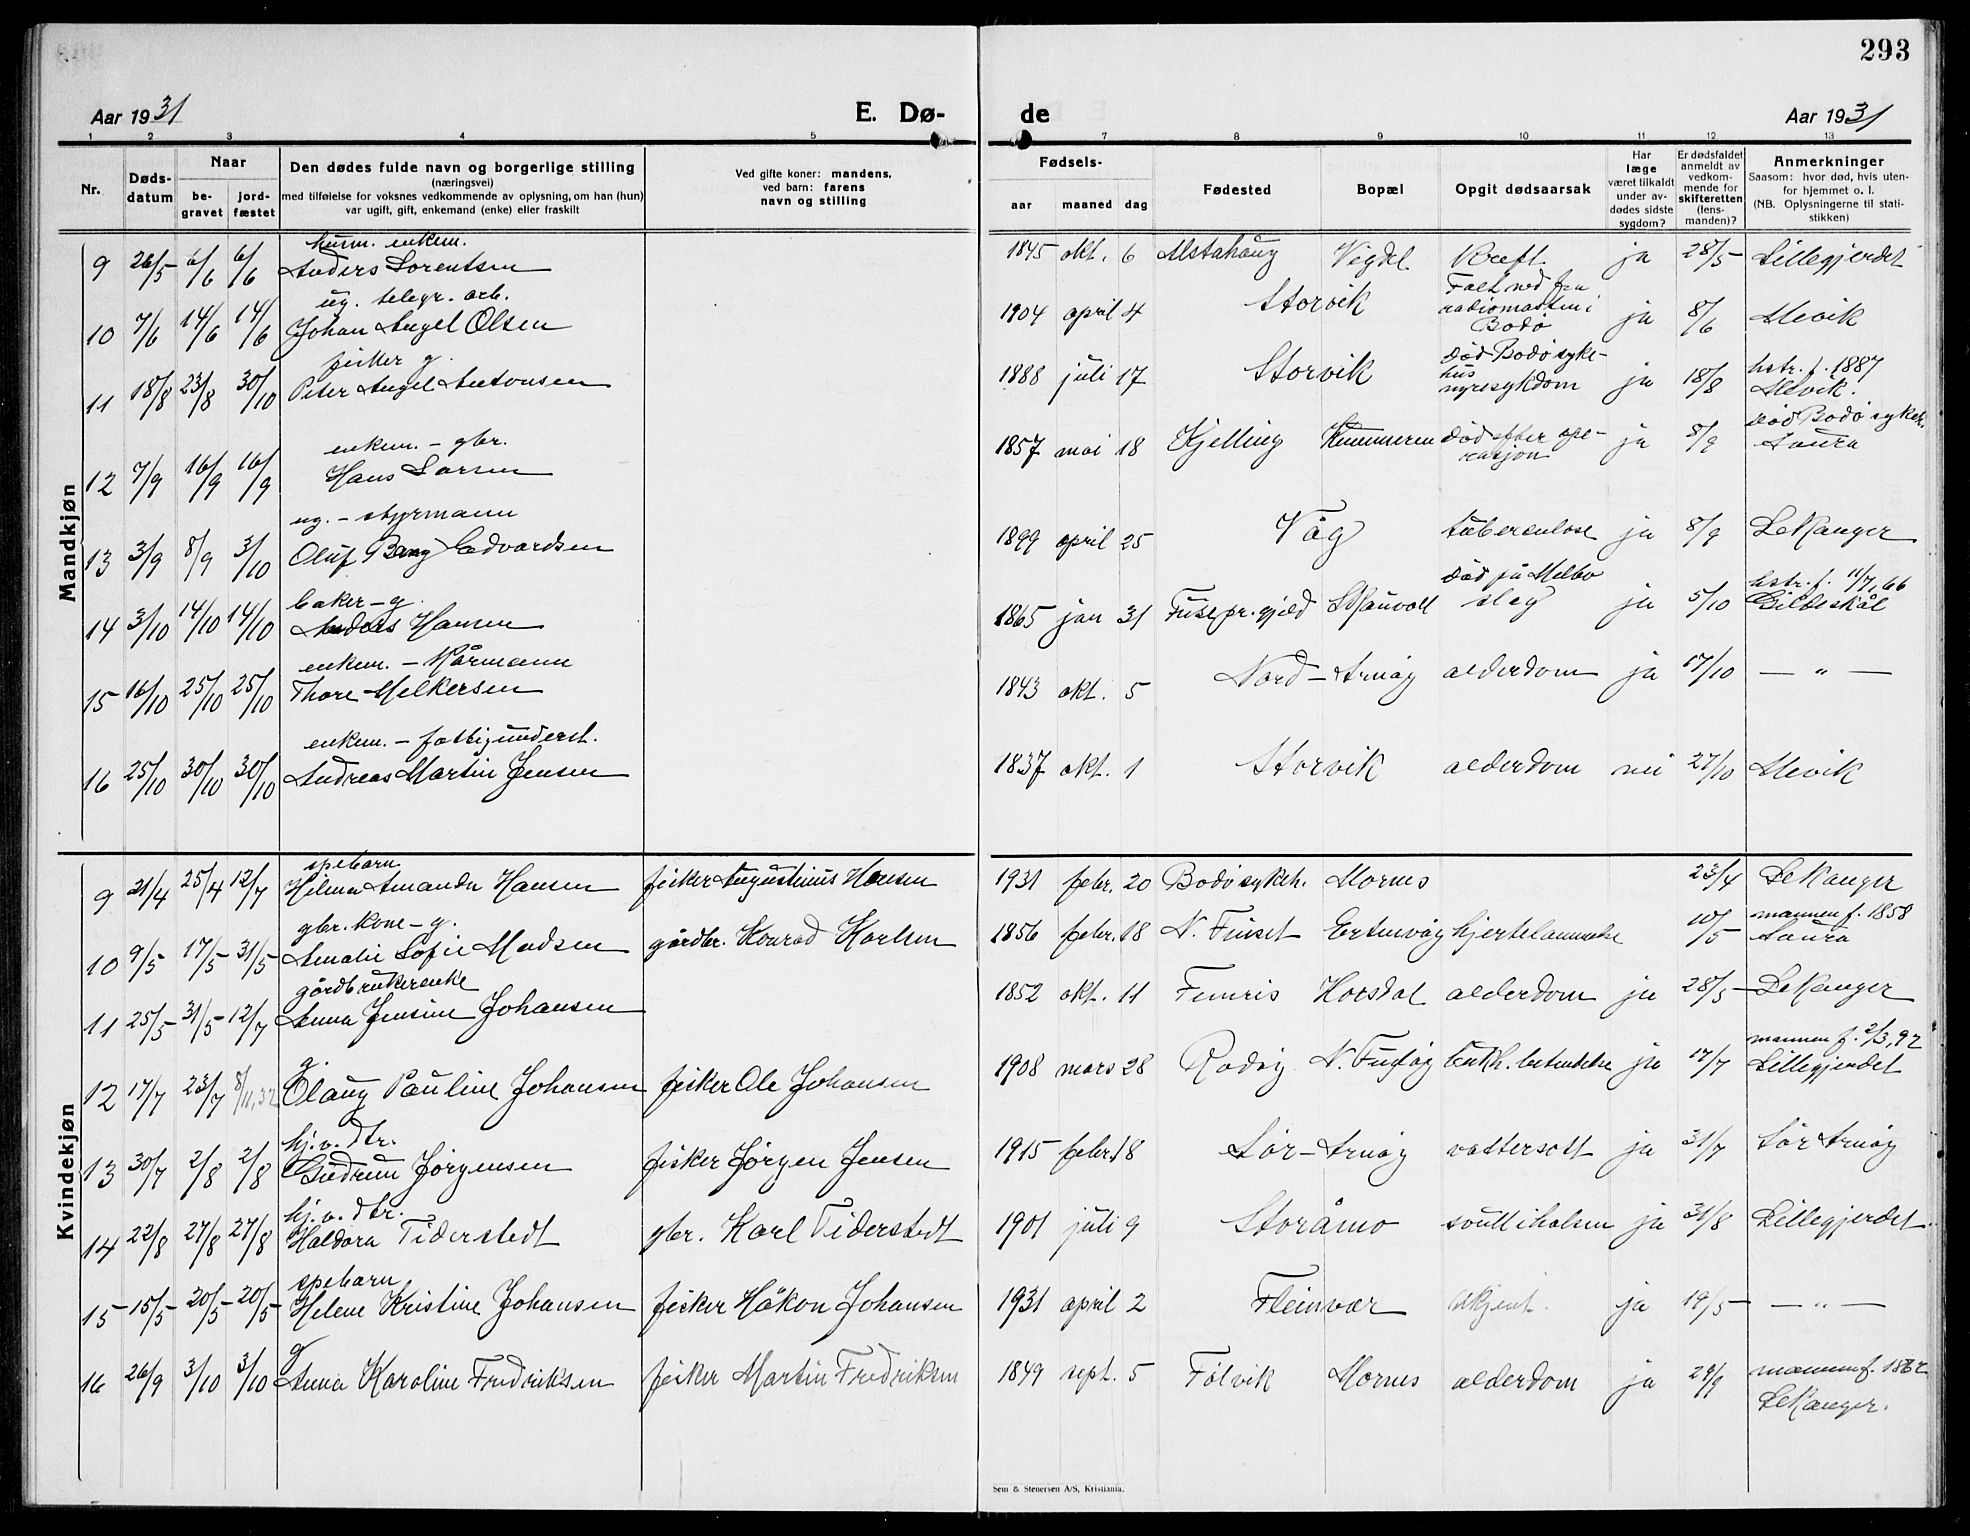 293
Aar 1931 E. Dø- de Aar 1931
1 2 3 4 5 7 8 9 10 11 12 13
Nr. Dødsdatum Naar begravet jordfæstet Den dødes fulde navn og borgerlige stilling (næringsvei) med tilføielse for voksnes vedkommende av oplysning, om han (hun) var ugift, gift, enkemand (enke) eller fraskilt Ved gifte koner: mandens, ved barn: farens navn og stilling Fødsels- aar maaned dag Fødested Bopæl Opgit dødsaarsak Har læge været tilkaldt under avdødes sidste sygdom? Er dødsfaldet anmeldt av vedkommende for skifteretten (lensmanden)? Anmerkninger Saasom: hvor død, hvis utenfor hjemmet o. l. (NB. Oplysningerne til statistikken)
Mandkjøn
9 26/5 6/6 6/6 husm. enkem. Anders Lorentsen 1845 okt. 6 Alstahaug Vigdel Kreft ja 28/5 Lillegjerdet
10 7/6 14/6 14/6 ug. telegr. arb. Johan Angel Olsen 1904 april 4 Storvik Falt ned fra radiomasten i Bodø ja 8/6 Mevik
11 18/8 23/8 30/10 fisker g. Peter Angel Antonsen 1888 juli 17 Storvik død Bodø sykehus nyresykdom ja 18/8 hstr. f. 1887 Mevik.
12 7/9 16/9 16/9 enkem. - gbr. Hans Larsen 1857 mai 18 Kjelling død efter operasjon ja 8/9 død Bodø sykeh. Saura
13 3/9 8/9 3/10 ug. - styrmann Oluf Bang Edvardsen 1899 april 25 Våg tuberculose ja 8/9 Lekanger
14 3/10 14/10 14/10 baker - g. Anders Hansen 1865 jan 31 Fuse pr.gjeld Skauvoll død på Melbo slag ja 5/10 hstr. f. 11/7, 66 Gildeskål
15 16/10 25/10 25/10 enkem. - kårmann Thore Melkersen 1843 okt. 5 Nord-Arnøy alderdom ja 17/10 — " —
16 25/10 30/10 30/10 enkem. - fattigunderst. Andreas Martin Jensen 1837 okt. 1 Storvik alderdom nei 27/10 Mevik
Kvindekjøn
9 21/4 25/4 12/7 spebarn Hilma Amanda Hansen fisker Augustinus Hansen 1931 febr. 20 Bodø sykeh. Mornes 23/4 Lekanger
10 9/5 17/5 31/5 gbr. kone - g. Amalie Sofie Madsen gårdbr. Konrad Karlsen 1856 febr. 18 N. Finset Ertenvåg hjertelammelse 10/5 mannen f. 1858 Saura
11 25/5 31/5 12/7 gårdbrukerenke Anna Jensine Johansen 1852 okt. 11 Horsdal alderdom ja 28/5 Lekanger
12 17/7 23/7 8/11,32 g. Olaug Pauline Johansen fisker Ole Johansen 1908 mars 28 Rødøy N. Fugløy ja 17/7 mannen f. 2/3,92 Lillegjerdet
13 30/7 2/8 2/8 hj.v. dtr. Gudrun Jørgensen fisker Jørgen Jensen 1915 febr. 18 Sør-Arnøy vattersott ja 31/7 Sør Arnøy
14 22/8 27/8 27/8 hj.v. dtr. Haldora Tiderstedt gbr. Karl Tiderstedt 1901 juli 9 Storåmo svull i halsen ja 31/8 Lillegjerdet
15 15/5 20/5 20/5 spebarn Helene Kristine Johansen fisker Håkon Johansen 1931 april 2 Fleinvær ukjent. ja 19/5 — " —
16 26/9 3/10 3/10 g Anna Karoline Fredriksen fisker Martin Fredriksen 1849 sept. 5 Følvik Mornes alderdom ja 29/9 mannen f. 1862 Lekanger.
Sem & Stenersen A/S, Kristiania.